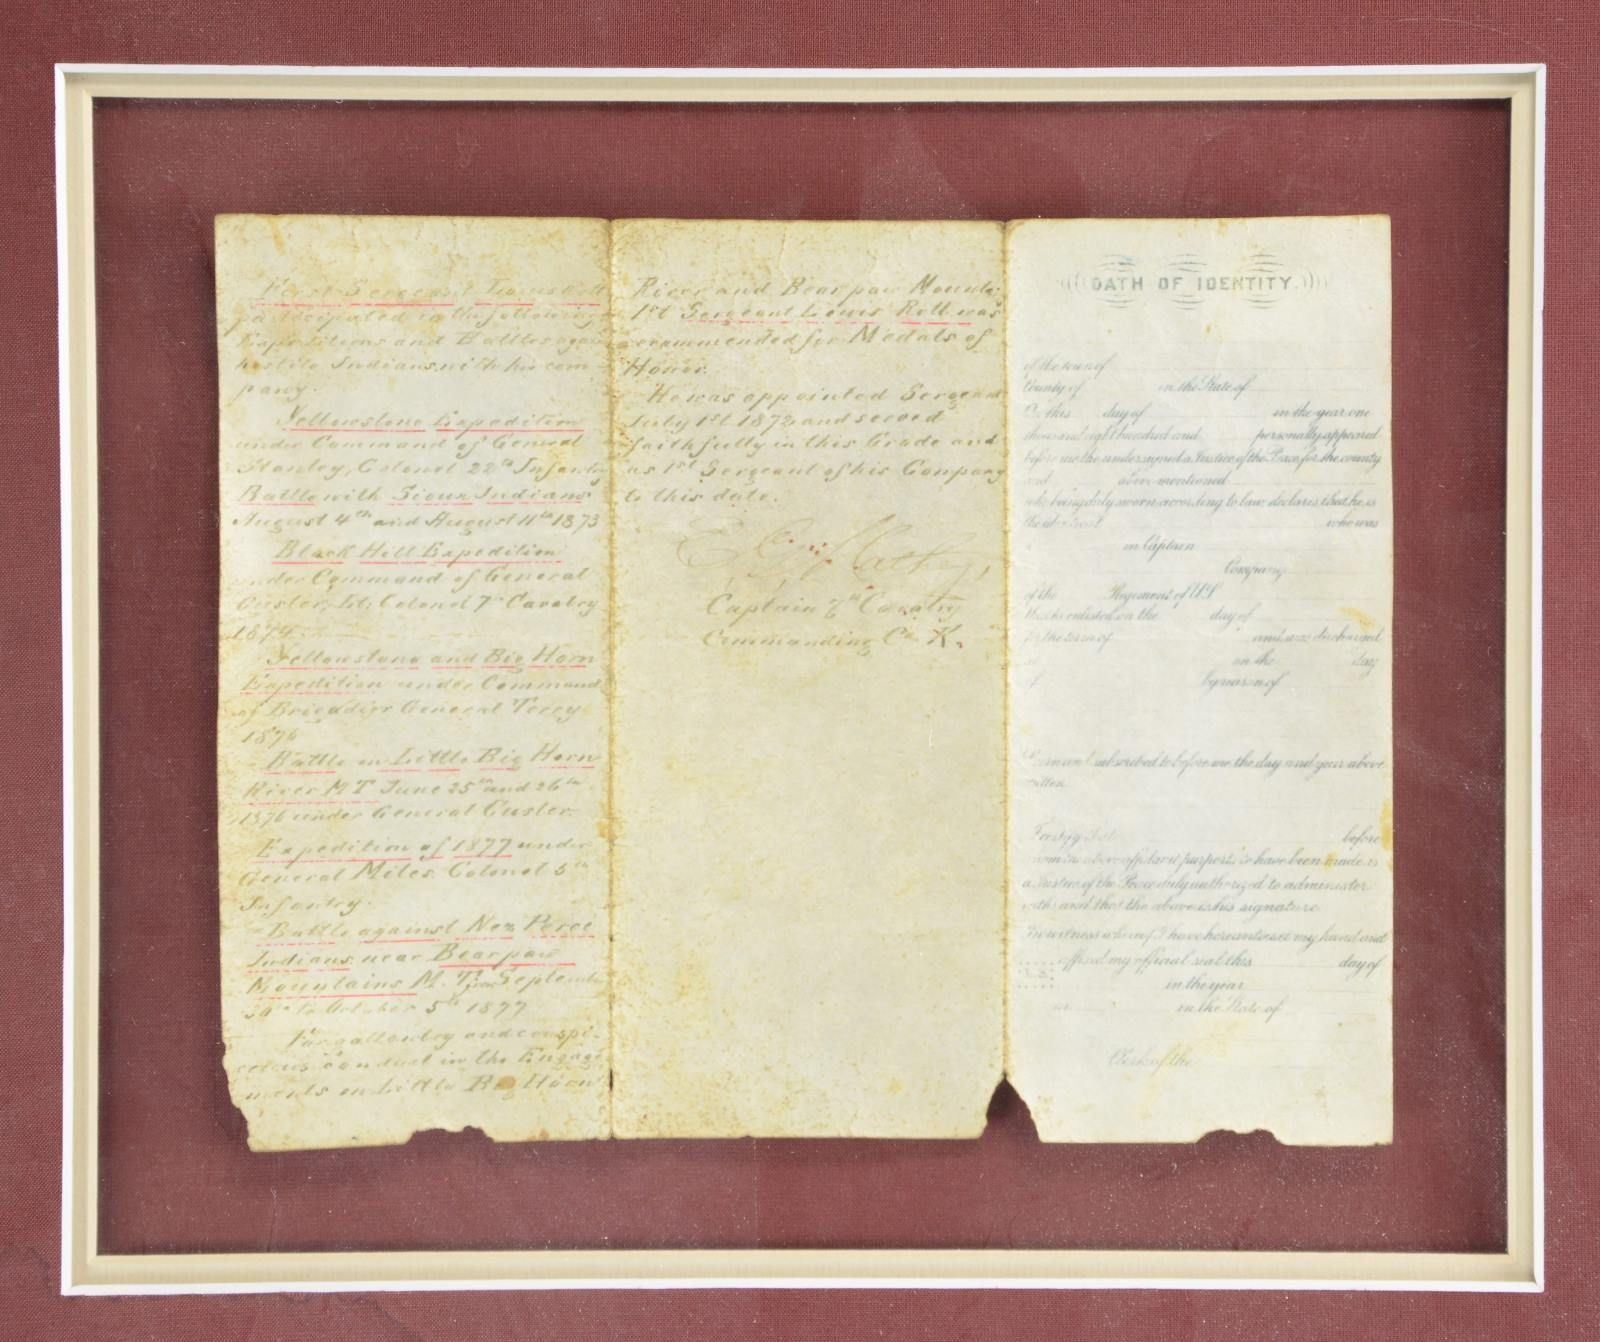 First Sergeant Louis Rott
participated in the following
Expeditions and Battles again
hostile Indians with his com
pany.
Yellowstone Expedition
under Command of General
Stanley, Colonel 22th Infantry
Battle with Sioux Indians
August 4th and August 11th 1873
Black Hill Expedition
under Command of General
Custer, Lt. Colonel 7th Cavalry
1874.
Yellowstone and Big Horn
Expedition under Command
of Brigadier General Terry
1876
Battle on Little Big Horn
River M.T. June 25th and 26th
1876 under General Custer
Expedition of 1877 under
General Miles Colonel 5th
Infantry.
Battle against Nez Perce
Indians near Bearpaw
Mountains M. T. from Septemb
30th to October 5th 1877
For gallantry and conspi-
cuous conduct in the Engage
ments on Little Big Horn
River and Bearpaw Mounts:
1st Sergeant Louis Rott was
recommended for Medals of
Honor.
He was appointed Sergeant
July 1st 1872 and served
faithfully in this Grade and
as 1st Sergeant of his Company
to this date.
E. G. Mathey,
Captain 7th Cavalry
Commanding Co. K.
OATH OF IDENTITY.
of the town of
County of in the State of
On this day of in the year one
thousand eight hundred and personally appeared
before me the undersigned a Justice of the Peace for the county
and above mentioned
who being duly sworn according to law declares that he is
the identical who was
a in Captain
Company
of the Regiment of U.S.
that he enlisted on the day of
for the term of and was discharged
at on the day
of by reason of
Sworn and subscribed to before me the day and year above
written
I certify that before
whom the above affidavit purports to have been made is
a Justice of the Peace duly authorized to administer
oaths and that the above is his signature
In witness whereof I have hereunto set my hand and
affixed my official seal this day of
in the year
at in the State of
Clerk of the